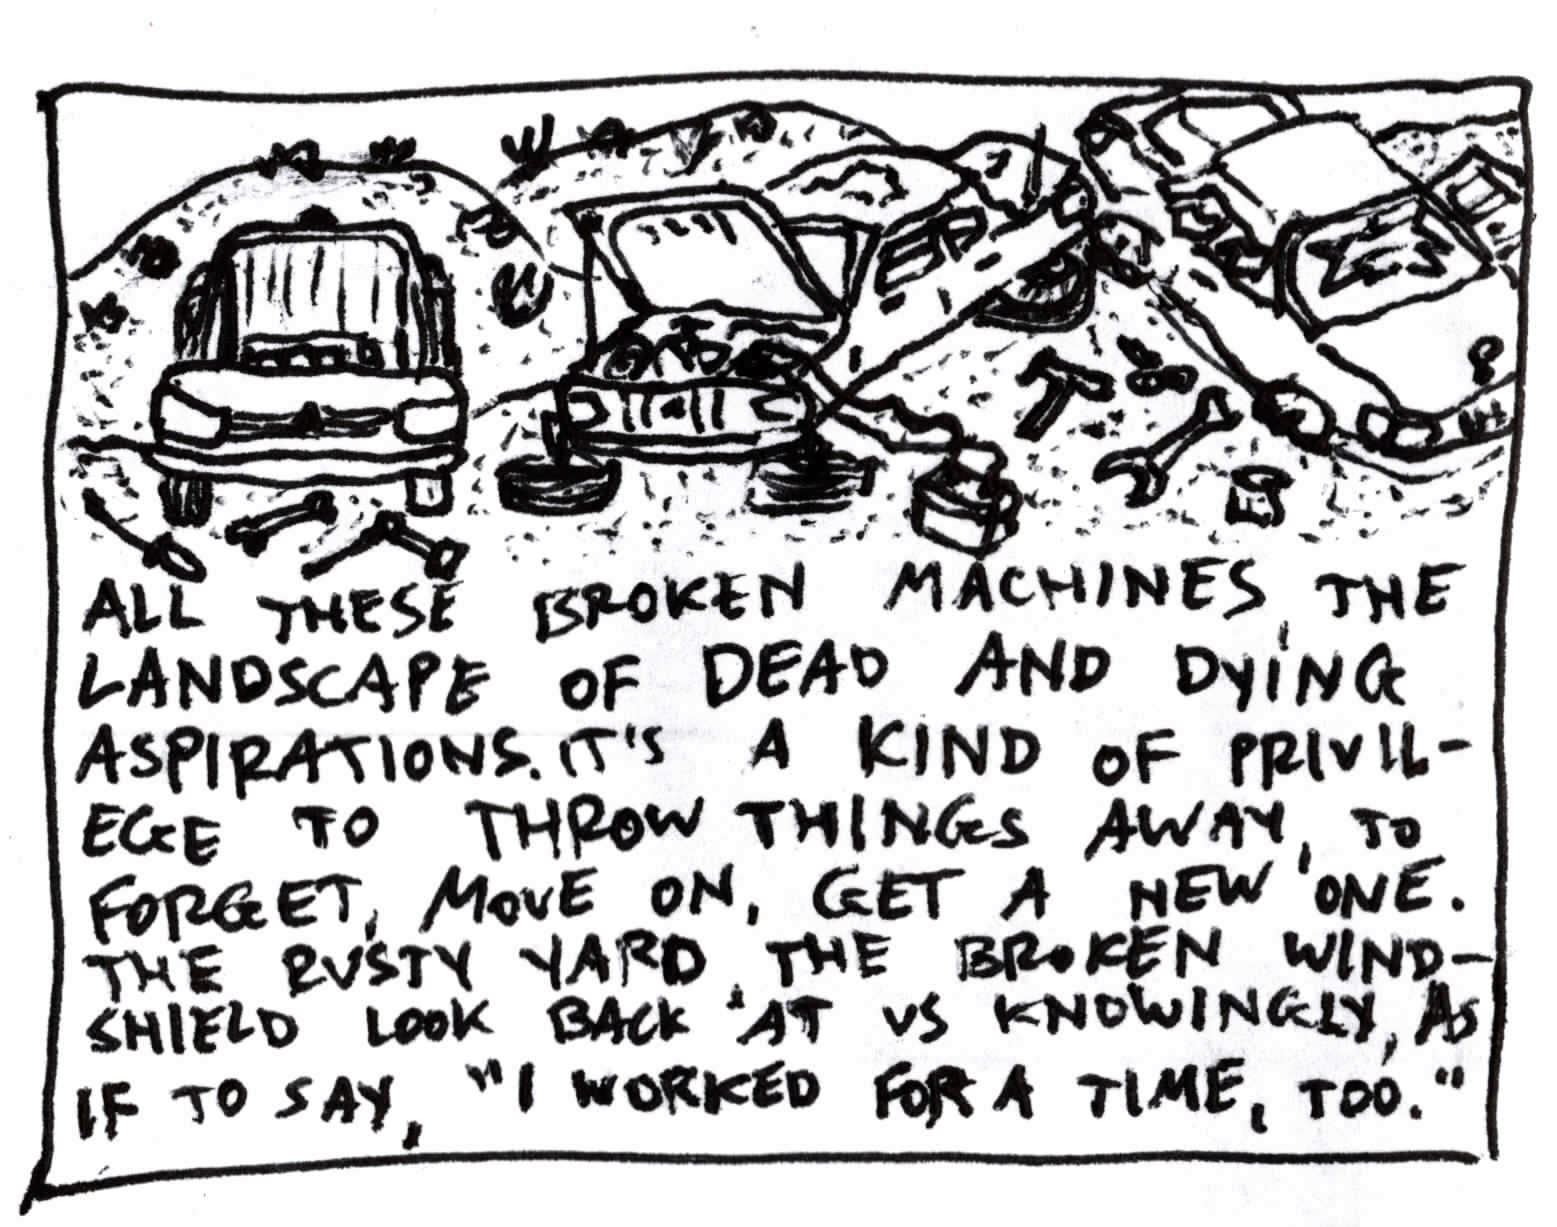 ALL THESE BROKEN MACHINES, THE
LANDSCAPE OF DEAD AND DYING
ASPIRATIONS. IT'S A KIND OF PRIVIL-
EGE TO THROW THINGS AWAY, TO
FORGET, MOVE ON, GET A NEW ONE.
THE RUSTY YARD, THE BROKEN WIND-
SHIELD LOOK BACK AT US KNOWINGLY, AS
IF TO SAY, "I WORKED FOR A TIME, TOO."